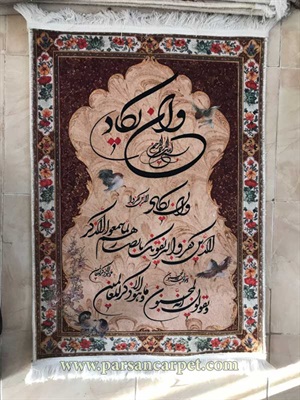 وان یکاد
بسم الله الرحمن الرحیم
وان یکاد
الذین کفروا لیزلقونک بابصارهم لما سمعوا الذکر
و یقولون انه لمجنون
و ما هو الا ذکر للعالمین
www.parsancarpet.com